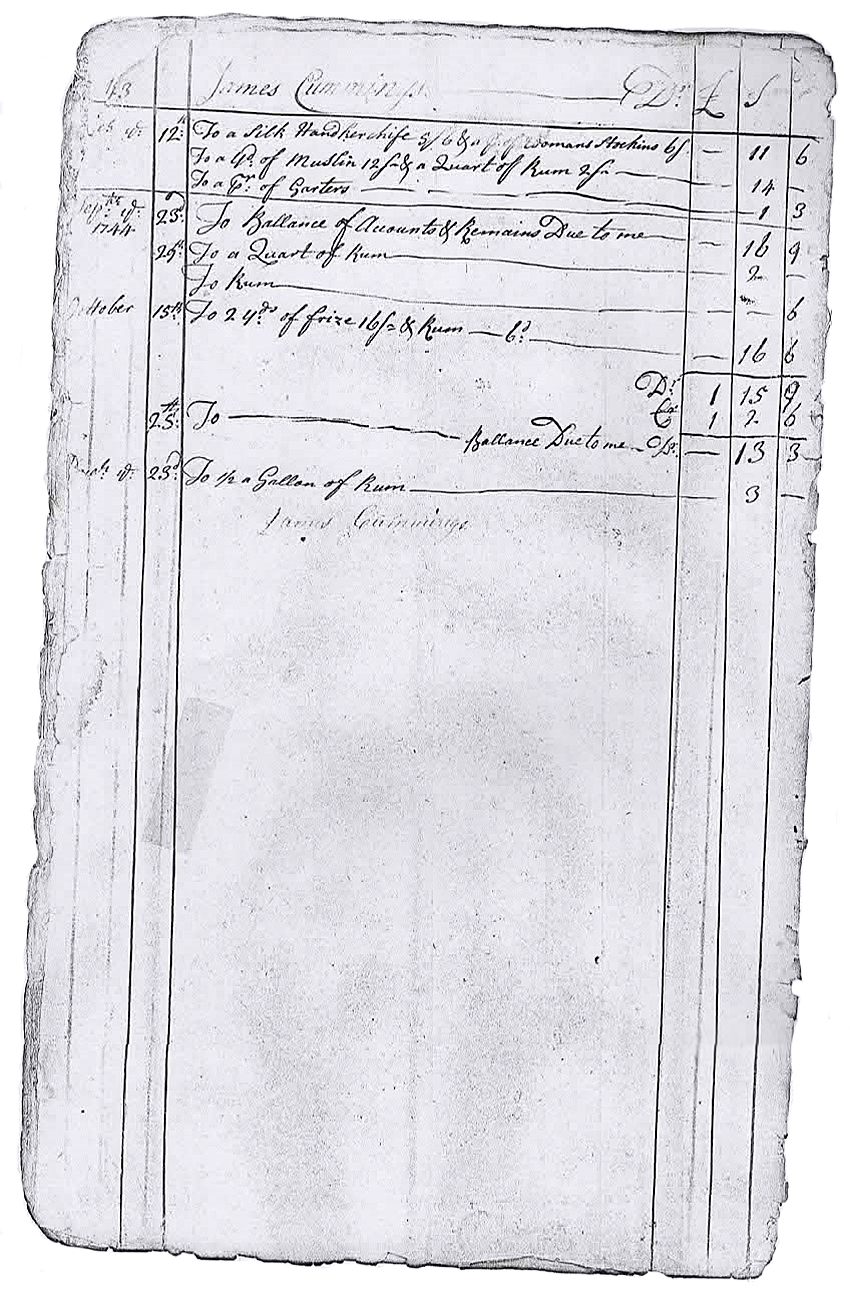 43 James Cummings Dr. £ S
12th To a Silk Handkerchife 5/6 & a of Womans Stockins 6/ — 11 6
To a Yd. of Muslin 12/= & a Quart of Rum 2/= 14 —
To a Pr. of Garters 1 3
23d To Ballance of Acounts & Remains Due to me — 16 9
1744
29th To a Quart of Rum 2 —
To Rum — — 6
October 15th To 2 yds of frize 16/= & Rum — 6d — 16 6
Dr. 1 15 9
Cr. 1 2 6
25th To Ballance Due to me — — 13 3
23d To 1/2 a Gallon of Rum 3 —
James Cummings